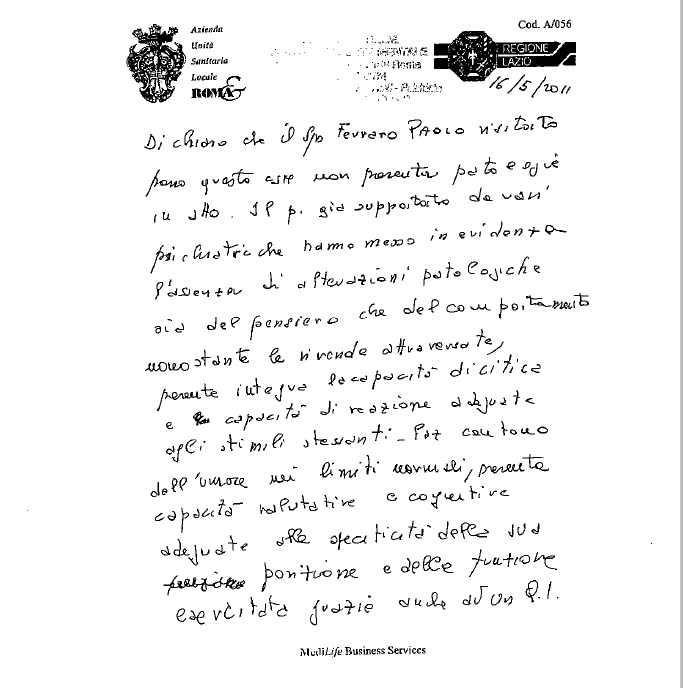 Cod. A/056
Azienda
Unità
Sanitaria
Locale
ROMA E
REGIONE
LAZIO
16/5/2011
Dichiaro che il Sig Ferraro PAOLO visitato
presso questo csm non presenta patologie
in atto. Il p. già supportato da vari
psichiatri che hanno messo in evidenza
l'assenza di alterazioni patologiche
sia del pensiero che del comportamento
nonostante le vicende attraversate,
presenta integra la capacità di citica
e capacità di reazione adeguate
agli stimoli stressanti - Paz con tono
dell'umore nei limiti normali, presenta
capacità valutative e cognitive
adeguate alla specificità della sua
posizione e della funzione
esercitata grazie anche ad un Q.I.
MediLife Business Services